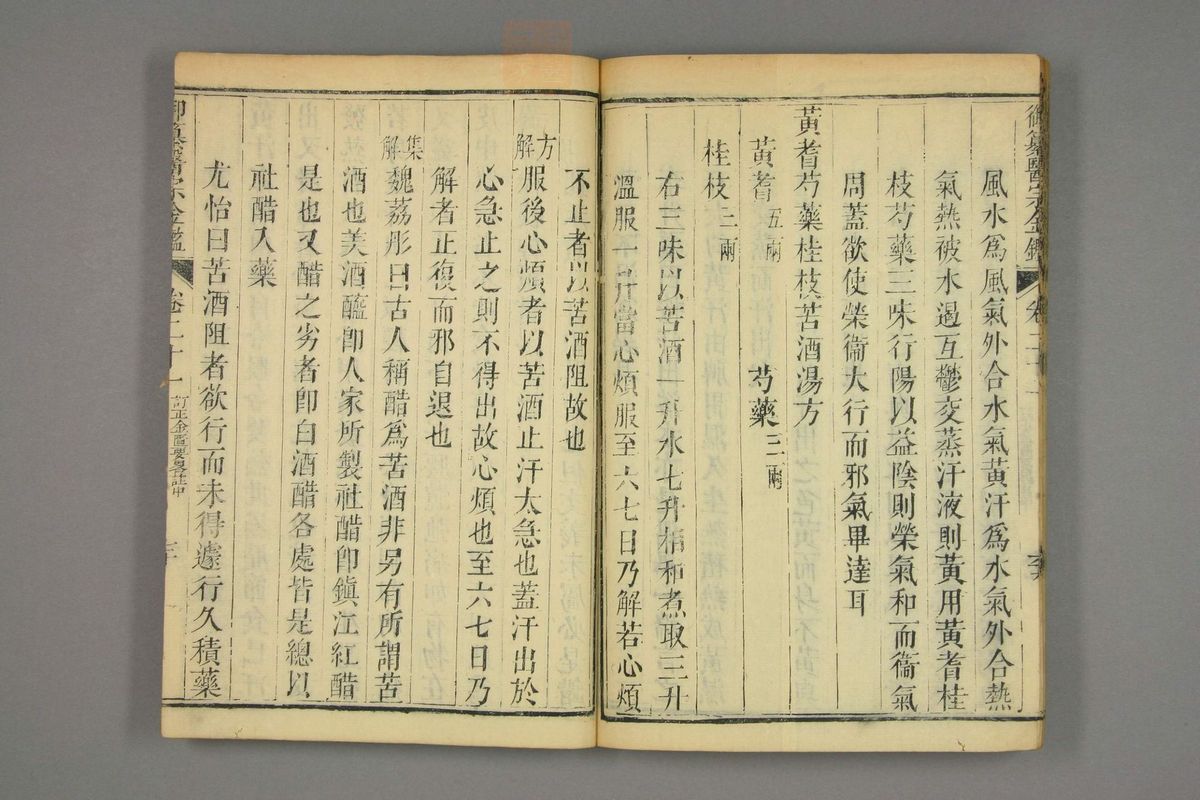 御纂醫宗金鑑 卷二十一
風水爲風氣外合水氣黃汗爲水氣外合熱
氣熱被水遏互鬱交蒸汗液則黃用黃耆桂
枝芍藥三味行陽以益陰則榮氣和而衞氣
周蓋欲使榮衞大行而邪氣畢達耳
黃耆芍藥桂枝苦酒湯方
黃耆五兩 芍藥三兩
桂枝三兩
右三味以苦酒一升水七升相和煮取三升
溫服一升當心煩服至六七日乃解若心煩
不止者以苦酒阻故也
方解服後心煩者以苦酒止汗太急也蓋汗出於
心急止之則不得出故心煩也至六七日乃
解者正復而邪自退也
集解魏荔彤曰古人稱醋爲苦酒非另有所謂苦
酒也美酒醯卽人家所製社醋卽鎭江紅醋
是也又醋之劣者卽白酒醋各處皆是總以
社醋入藥
尤怡曰苦酒阻者欲行而未得遽行久積藥
御纂醫宗金鑑 卷二十一 訂正金匱要畧註中